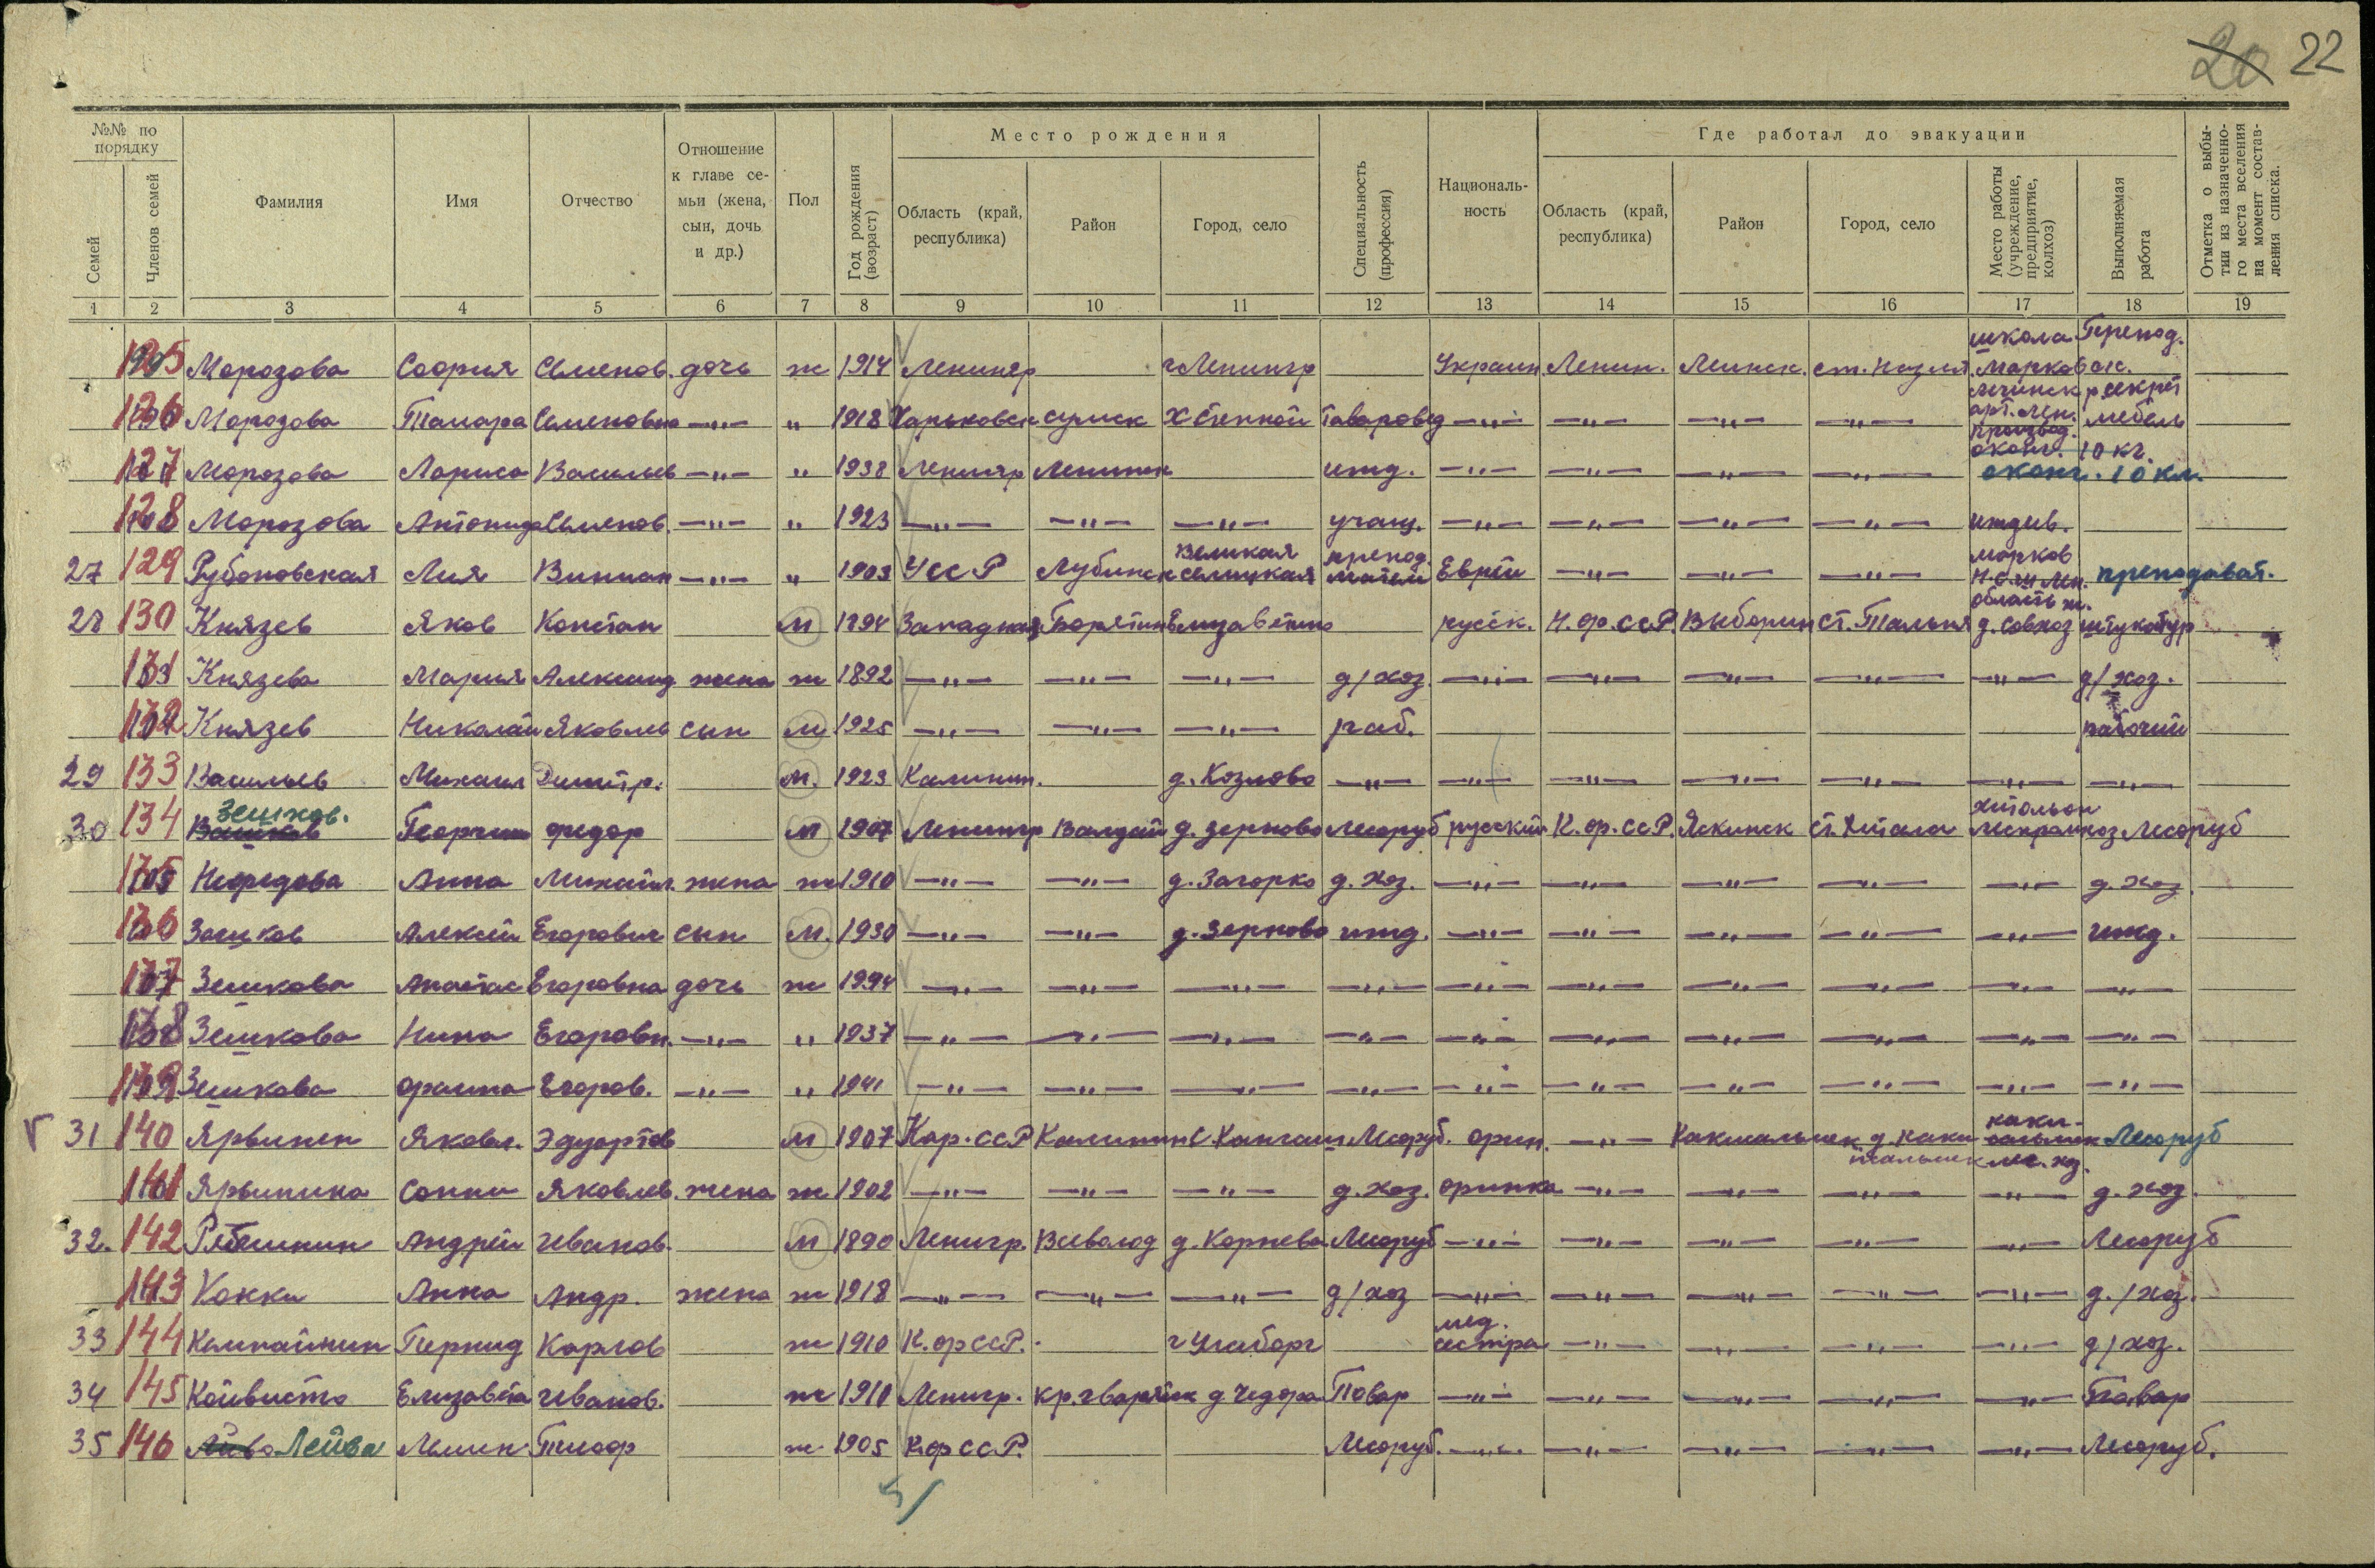 20 22
№№ по порядку
Семей
Членов семей
Фамилия
Имя
Отчество
Отношение к главе семьи (жена, сын, дочь и др.)
Пол
Год рождения (возраст)
Место рождения
Область (край, республика)
Район
Город, село
Специальность (профессия)
Националь-ность
Где работал до эвакуации
Область (край, республика)
Район
Город, село
Место работы (учреждение, предприятие, колхоз)
Выполняемая работа
Отметка о выбы-тии из назначенно-го места вселения на момент состав-ления списка.
1 2 3 4 5 6 7 8 9 10 11 12 13 14 15 16 17 18 19
125 Морозова София Семенов. дочь ж 1914 Ленингр г Ленингр Украин Ленин. школа Препод.
126 Морозова Тамара Семеновна —„— „ 1918 Харьковск сумск Х Степной Товаровед —„— —„— —„— —„— мебель
127 Морозова Лариса Васильев —„— „ 1938 Ленингр Ленинск ижд. —„— —„— —„— —„— оконч. 10 кл.
128 Морозова Антонида Семенов. —„— „ 1923 —„— —„— —„— учащ. —„— —„— —„— —„— иждив.
27 129 Рубановская Лия —„— „ 1903 УССР Лубинск Великая препод. матем Еврей —„— —„— —„— преподават.
28 130 Князев Яков Констан м 1894 Западная русск. К.ф.ССР. Выборгн совхоз штукатур
131 Князева Мария Александ жена ж 1892 —„— —„— —„— д/хоз. —„— —„— —„— —„— —„— д/хоз.
132 Князев Николай Яковлев сын м 1925 —„— —„— —„— раб. рабочий
29 133 Васильев Михаил Дмитр. м. 1923 Калинин. д. Козлово —„— —„— —„— —„— —„— —„— —„—
30 134 Зешков. Георгий федор м 1907 Ленингр Валдай д. Зерново лесоруб русский К.ф.ССР. Яскинск ст. Хитола хитольск лесранхоз Лесоруб
135 Нефедова Анна Михайл. жена ж 1910 —„— —„— д. Загорко д. хоз. —„— —„— —„— —„— —„— д. хоз.
136 Зешков Алексей Егорович сын м. 1930 —„— —„— д. Зерново ижд. —„— —„— —„— —„— —„— ижд.
137 Зешкова Анастас Егоровна дочь ж 1934 —„— —„— —„— —„— —„— —„— —„— —„— —„— —„—
138 Зешкова Нина Егоровн. —„— „ 1937 —„— —„— —„— —„— —„— —„— —„— —„— —„— —„—
139 Зешкова фаина Егоров. —„— „ 1941 —„— —„— —„— —„— —„— —„— —„— —„— —„— —„—
31 140 Ярвинен Яковл. Эдуартов м 1907 Кар.ССР Калинин Лесоруб. фин. —„— Лесоруб
141 Ярвинина Санни Яковлев. жена ж 1902 —„— —„— —„— д. хоз. финка —„— —„— —„— —„— д. хоз.
32. 142 Андрей Иванов. м 1890 Ленигр. Всеволод д. Корнева Лесоруб —„— —„— —„— —„— —„— Лесоруб
143 Кокки Анна Андр. жена ж 1918 —„— —„— —„— д/хоз —„— —„— —„— —„— —„— д./хоз.
33 144 Карлов ж 1910 К.ф ССР. мед. сестра —„— —„— —„— —„— д/хоз.
34 145 Койвисто Елизавета Иванов. ж 1910 Ленигр. Повар —„— —„— —„— —„— —„— Повар
35 146 Лейва Теодор ж 1905 К.ф ССР. Лесоруб. —„— —„— —„— —„— —„— Лесоруб.